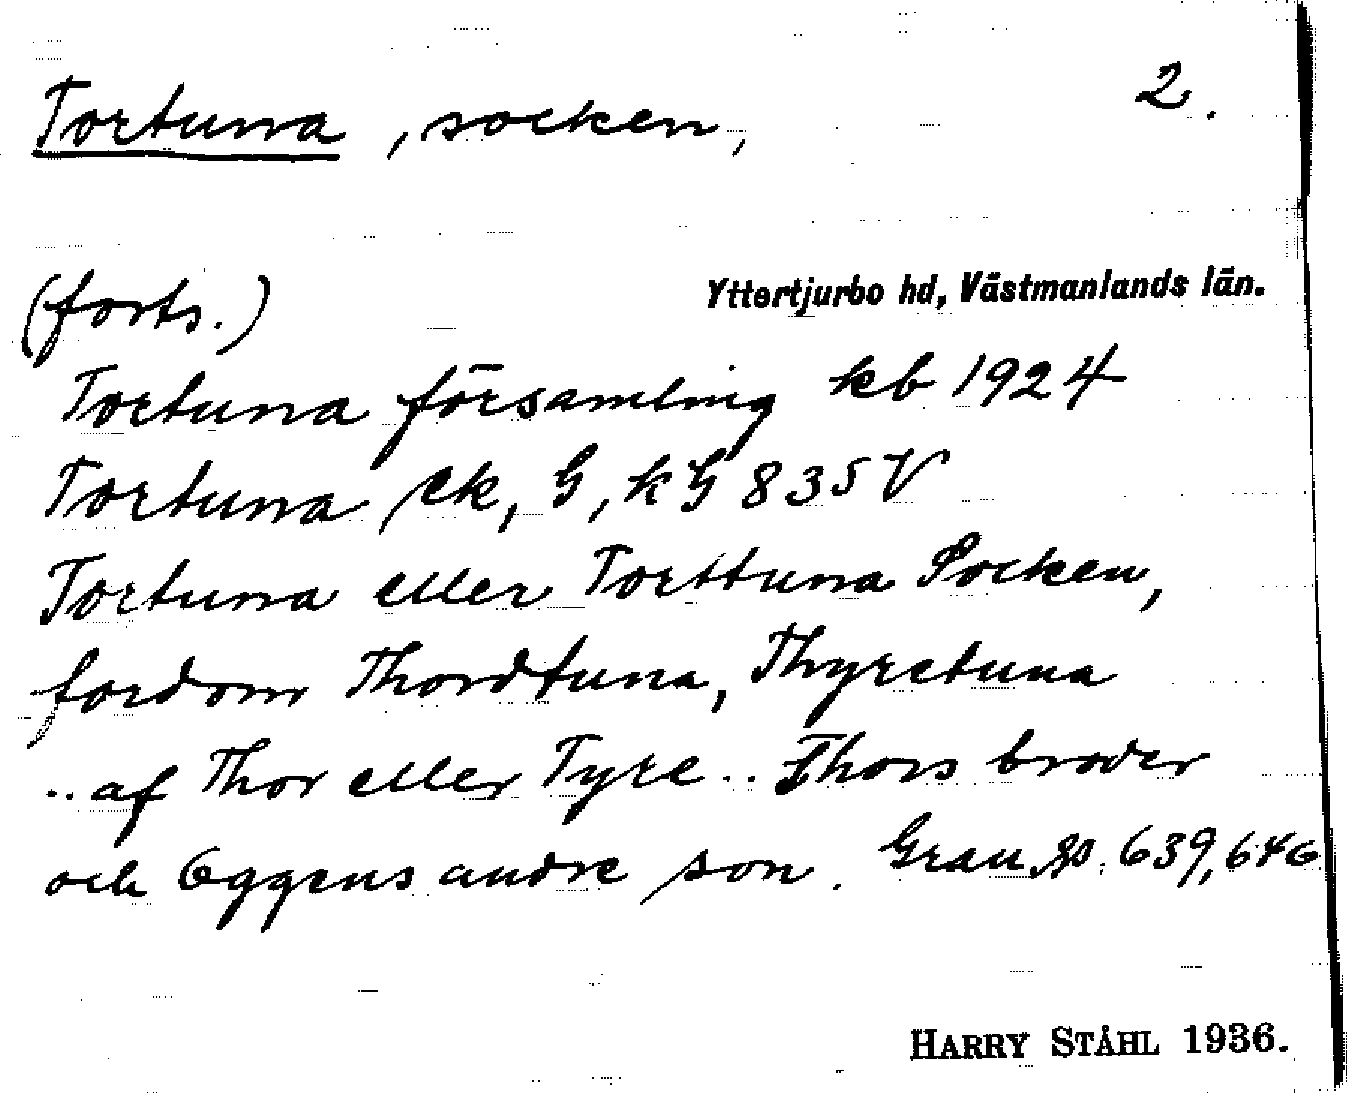 Tortuna, socken, 2.
(forts.) Yttertjurbo hd, Västmanlands län.
Tortuna församling kb 1924
Tortuna ck, G, kG 835 V
Tortuna eller Torttuna Socken,
fordom Thordtuna, Thyretuna
.. af Thor eller Tyre .. Thors broder
och Oggens andre son. Grau, s. 639, 646
HARRY STÅHL 1936.